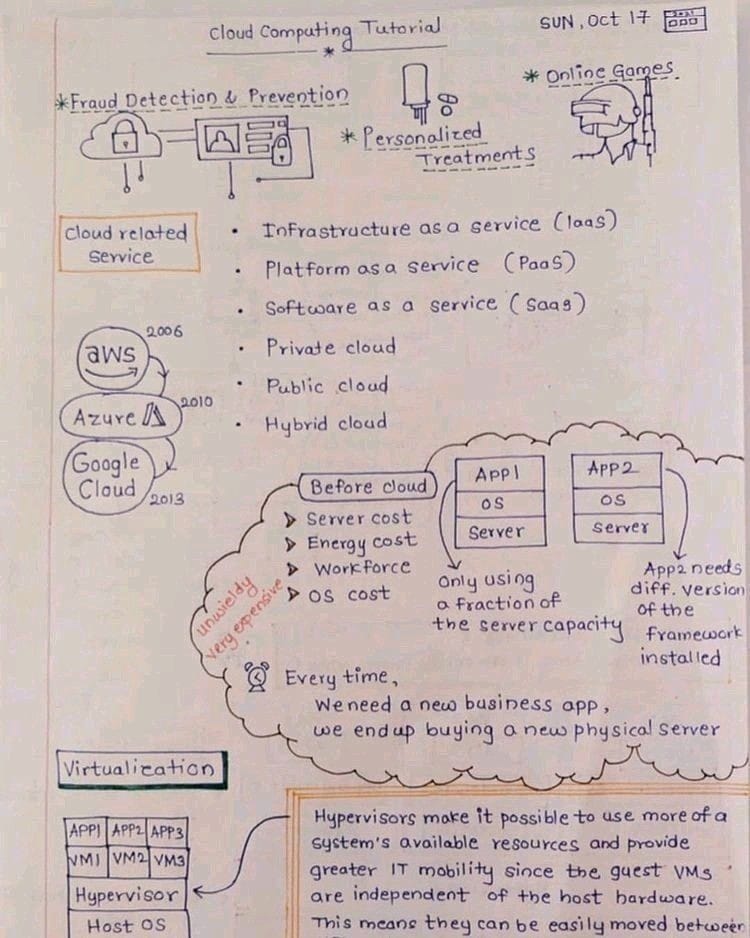 Cloud Computing Tutorial
SUN, Oct 17
2021
*Fraud Detection & Prevention
* Personalized
Treatments
* Online Games
Cloud related
service
• Infrastructure as a service (IaaS)
• Platform as a service (PaaS)
• Software as a service (SaaS)
• Private cloud
• Public cloud
• Hybrid cloud
aws
2006
Azure
2010
Google
Cloud
2013
Before cloud
➤ Server cost
➤ Energy cost
➤ Workforce
➤ OS cost
unwieldy
very expensive
APP1
OS
Server
APP2
OS
Server
Only using
a fraction of
the server capacity
App2 needs
diff. version
of the
framework
installed
Every time,
We need a new business app,
we end up buying a new physical server
Virtualization
APP1 APP2 APP3
VM1 VM2 VM3
Hypervisor
Host OS
Hypervisors make it possible to use more of a
system's available resources and provide
greater IT mobility since the guest VMs
are independent of the host hardware.
This means they can be easily moved between